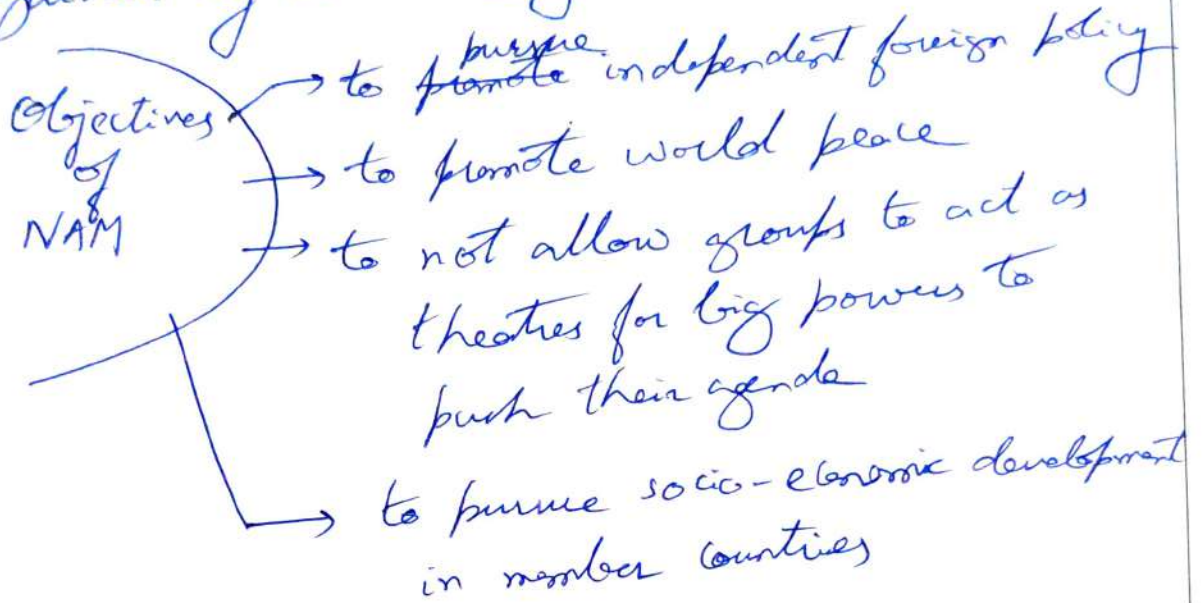 Objectives
of
NAM
pursue
to promote independent foreign policy
to promote world peace
to not allow groups to act as
theatres for big powers to
push their agenda
to pursue socio-economic development
in member countries